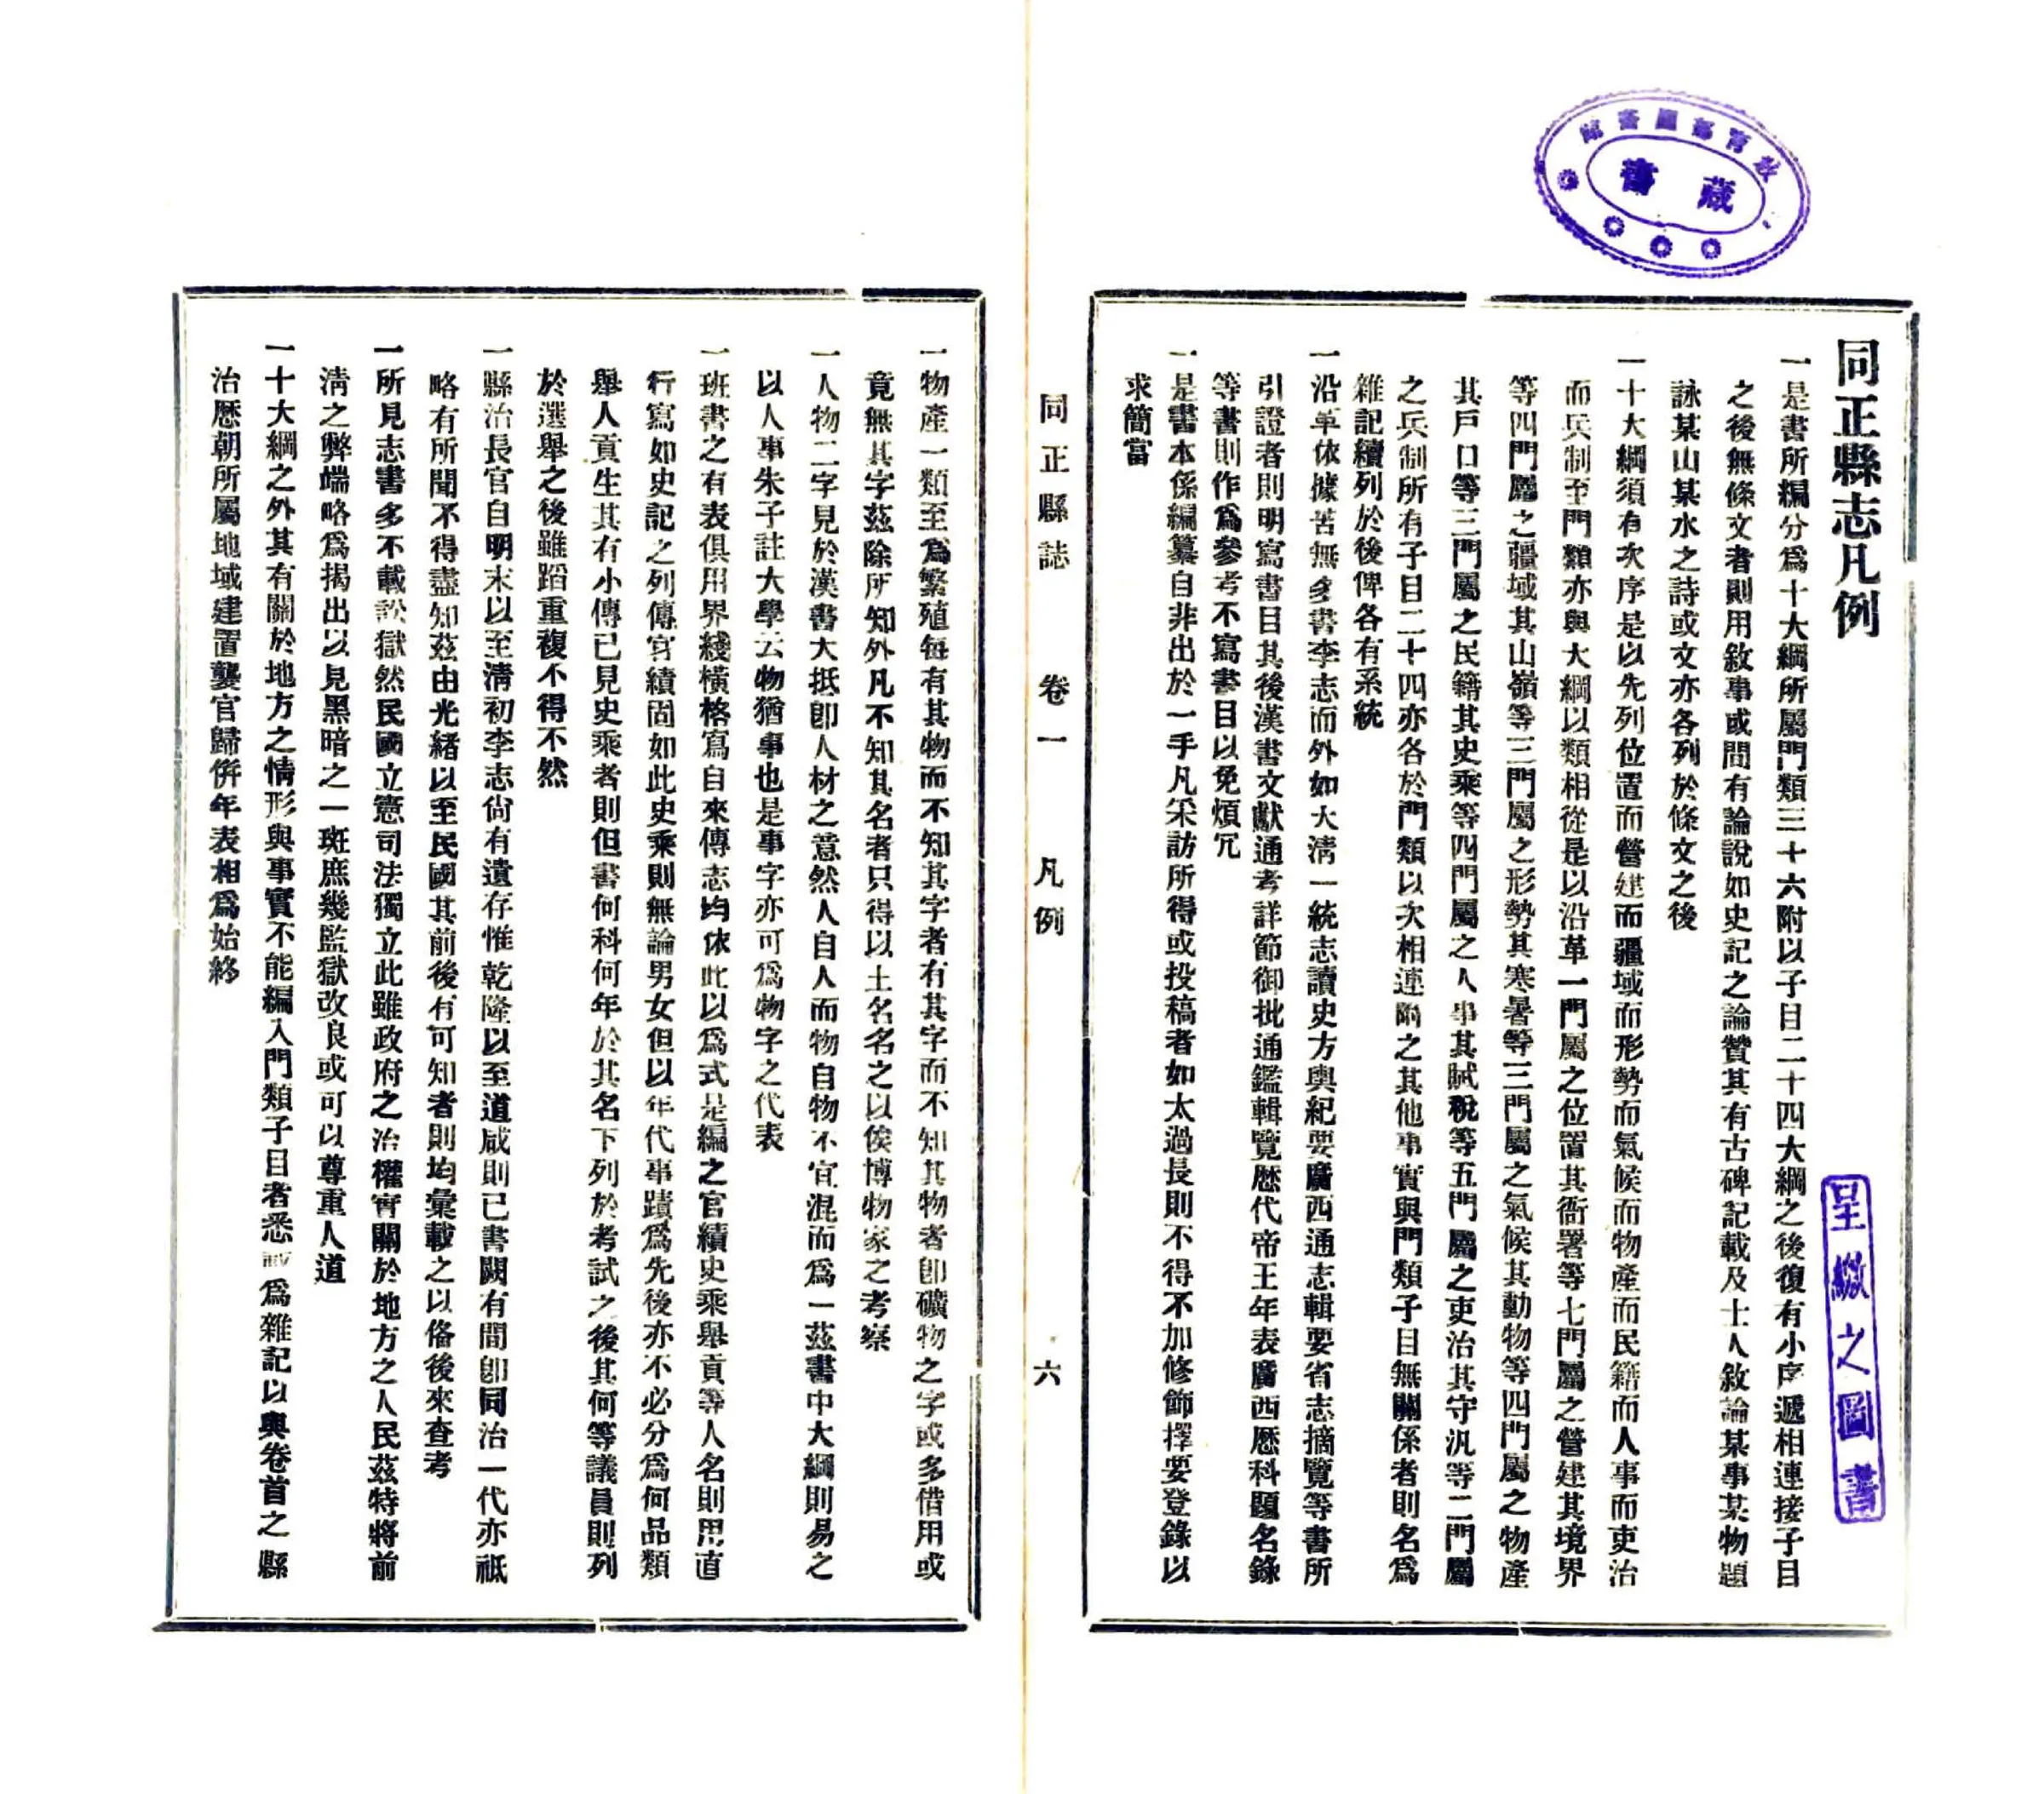 教育部圖書館
藏書
同正縣志凡例
呈繳之圖書
一是書所編分爲十大綱所屬門類三十六附以子目二十四大綱之後復有小序遞相連接子目
之後無條文者則用敘事或間有論說如史記之論贊其有古碑記載及士人敘論某事某物題
詠某山某水之詩或文亦各列於條文之後
一十大綱須有次序是以先列位置而營建而疆域而形勢而氣候而物產而民籍而人事而吏治
而兵制至門類亦與大綱以類相從是以沿革一門屬之位置其衙署等七門屬之營建其境界
等四門屬之疆域其山嶺等三門屬之形勢其寒暑等三門屬之氣候其動物等四門屬之物產
其戶口等三門屬之民籍其史乘等四門屬之人事其賦稅等五門屬之吏治其守汛等二門屬
之兵制所有子目二十四亦各於門類以次相連附之其他事實與門類子目無關係者則名爲
雜記續列於後俾各有系統
一沿革依據苦無多書李志而外如大淸一統志讀史方輿紀要廣西通志輯要省志摘覽等書所
引證者則明寫書目其後漢書文獻通考詳節御批通鑑輯覽歷代帝王年表廣西歷科題名錄
等書則作爲參考不寫書目以免煩冗
一是書本係編纂自非出於一手凡采訪所得或投稿者如太過長則不得不加修飾擇要登錄以
求簡富
同正縣誌 卷一 凡例 六
一物產一類至爲繁殖每有其物而不知其字者有其字而不知其物者卽礦物之字或多借用或
竟無其字茲除所知外凡不知其名者只得以土名名之以俟博物家之考察
一人物二字見於漢書大抵卽人材之意然人自人而物自物不宜混而爲一茲書中大綱則易之
以人事朱子註大學云物猶事也是事字亦可爲物字之代表
一班書之有表俱用界綫橫格寫自來傳志均依此以爲式是編之官績史乘舉貢等人名則用直
行寫如史記之列傳官績固如此史乘則無論男女但以年代事蹟爲先後亦不必分爲何品類
舉人貢生其有小傳已見史乘者則但書何科何年於其名下列於考試之後其何等議員則列
於選舉之後雖蹈重複不得不然
一縣治長官自明末以至淸初李志尙有遺存惟乾隆以至道咸則已書闕有間卽同治一代亦祗
略有所聞不得盡知茲由光緖以至民國其前後有可知者則均彙載之以俻後來查考
一所見志書多不載訟獄然民國立憲司法獨立此雖政府之治權實關於地方之人民茲特將前
淸之弊端略爲揭出以見黑暗之一斑庶幾監獄改良或可以尊重人道
一十大綱之外其有關於地方之情形與事實不能編入門類子目者悉爲雜記以與卷首之縣
治歷朝所屬地域建置襲官歸併年表相爲始終